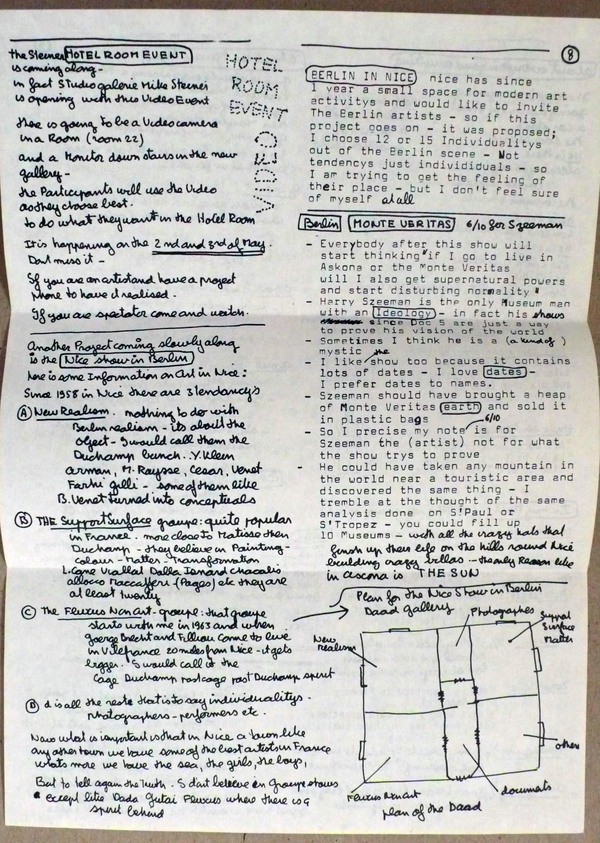 the Steiner HOTEL ROOM EVENT
is coming along -
in fact Studiogalerie Mike Steiner
is opening with this Video Event
there is going to be a Video camera
in a Room (room 22)
and a Monitor down stairs in the new
gallery -
the Participants will use the Video
as they choose best.
to do what they want in the Hotel Room
It is happening on the 2nd and 3rd of May.
Dont miss it -
If you are an artist and have a project
phone to have it realised.
If you are spectator come and watch.
HOTEL
ROOM
EVENT
Another Project coming slowly along
is the Nice show in Berlin
here is some Information on Art in Nice:
Since 1958 in Nice there are 3 tendancys
A New Realism. nothing to do with
Berlin realism - its about the
object - I would call them the
Duchamp bunch. Y. Klein
arman, M. Raysse, Cesar, Venet
Farhi gilli - some of them like
B. Venet turned into conceptuals
B THE Support Surface groupe: quite popular
in France. more close to Matisse then
Duchamp - they believe in Painting -
Colour - Matter - Transformation
Cane Viallat Dolla Isnard Chacalis
allocco Maccaferri (Pages) etc they are
at least twenty
C The Fluxus Non art - groupe: that groupe
starts with me in 1963 and when
george Brecht and Filliou came to live
in Villefrance 20 miles from Nice - it gets
bigger. I would call it the
Cage Duchamp post cage post Duchamp spirit
D d is all the rest that is to say individualitys -
photographers - performers etc.
Now what is important is that in Nice a town like
any other town we have some of the best artists in France
whats more we have the sea, the girls, the boys,
But to tell again the truth - I dont believe in Groupe shows
Except like Dada Gutai Fluxus where there is a
spirit behind
8
BERLIN IN NICE nice has since
1 year a small space for modern art
activitys and would like to invite
The Berlin artists - so if this
project goes on - it was proposed;
I choose 12 or 15 Individualitys
out of the Berlin scene - Not
tendencys just individiduals - so
I am trying to get the feeling of
their place - but I don't feel sure
of myself at all
Berlin MONTE VERITAS 6/10 for Szeeman
- Everybody after this show will
start thinking "if I go to live in
Askona or the Monte Veritas
will I also get supernatural powers
and start disturbing normality"
- Harry Szeeman is the only Museum man
with an Ideology - in fact his shows
since Doc 5 are just a way
to prove his vision of the world
- Sometimes I think he is a (a kind of)
mystic
- I like the show too because it contains
lots of dates - I love dates -
I prefer dates to names.
- Szeeman should have brought a heap
of Monte Veritas earth and sold it
in plastic bags
- So I precise my note 6/10 is for
Szeeman the (artist) not for what
the show trys to prove
- He could have taken any mountain in
the world near a touristic area and
discovered the same thing - I
tremble at the thought of the same
analysis done on S'Paul or
S'Tropez - you could fill up
10 Museums - with all the crazy hats that
finish up their life on the hills round Nice
building crazy villas - the only reason like
in ascona is THE SUN
Plan for the Nice Show in Berlin
Daad gallery
New
Realism
Photographes
Support
Surface
Matter
others
Fluxus Non art
documents
plan of the Daad